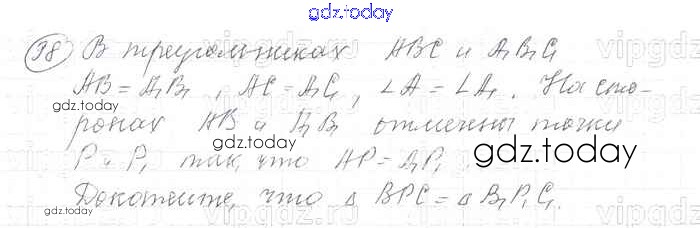 gdz.today
98 В треугольниках ABC и A₁B₁C₁
AB = A₁B₁, AC = A₁C₁, ∠A = ∠A₁. На сто-
gdz.today
ронах AB и A₁B₁ отмечены точки
P и P₁ так, что AP = A₁P₁.
gdz.today
Докажите, что △ BPC = △ B₁P₁C₁.
gdz.today
vipgdz.ru